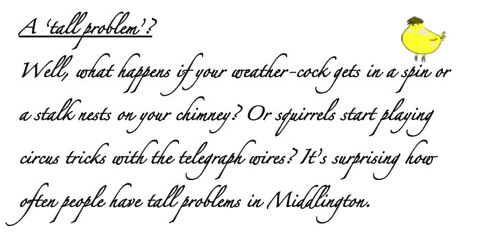 A 'tall problem'?
Well, what happens if your weather-cock gets in a spin or
a stalk nests on your chimney? Or squirrels start playing
circus tricks with the telegraph wires? It's surprising how
often people have tall problems in Middlington.